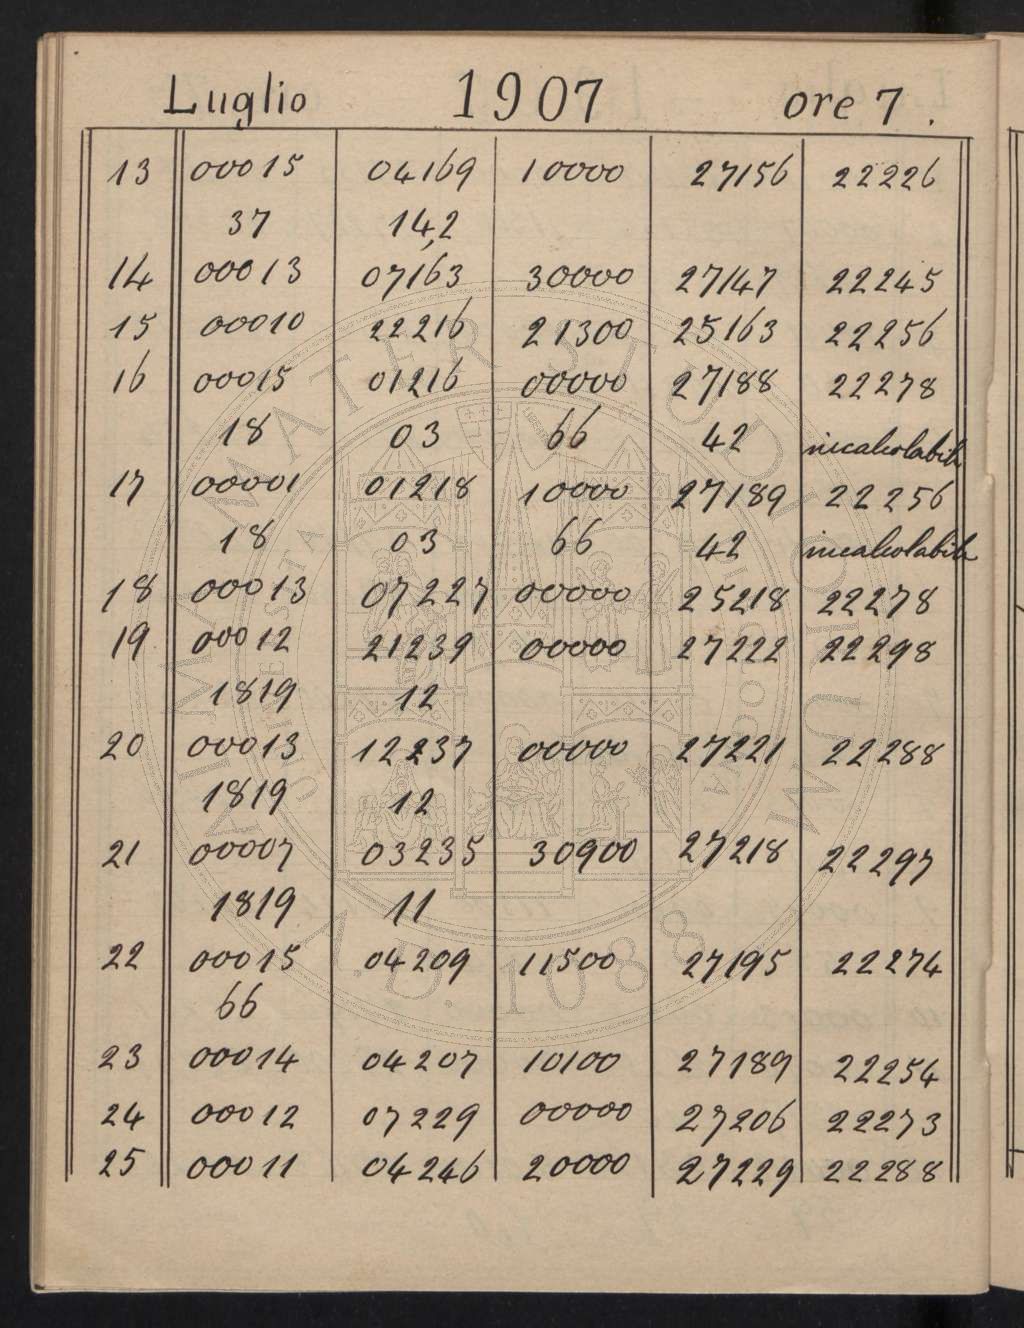 Luglio 1907 ore 7.
13 00015 04169 10000 27156 22226
37 14,2
14 00013 07163 30000 27147 22245
15 00010 22216 21300 25163 22256
16 00015 01216 00000 27188 22278
18 03 66 42 incalcolabile
17 00001 01218 10000 27189 22256
18 03 66 42 incalcolabile
18 00013 07227 00000 25218 22278
19 00012 21239 00000 27222 22298
1819 12
20 00013 12237 00000 27221 22288
1819 12
21 00007 03235 30900 27218 22297
1819 11
22 00015 04209 11500 27195 22274
66
23 00014 04207 10100 27189 22254
24 00012 07229 00000 27206 22273
25 00011 04246 20000 27229 22288
ALMA MATER STUDIORUM
A.D. 1088